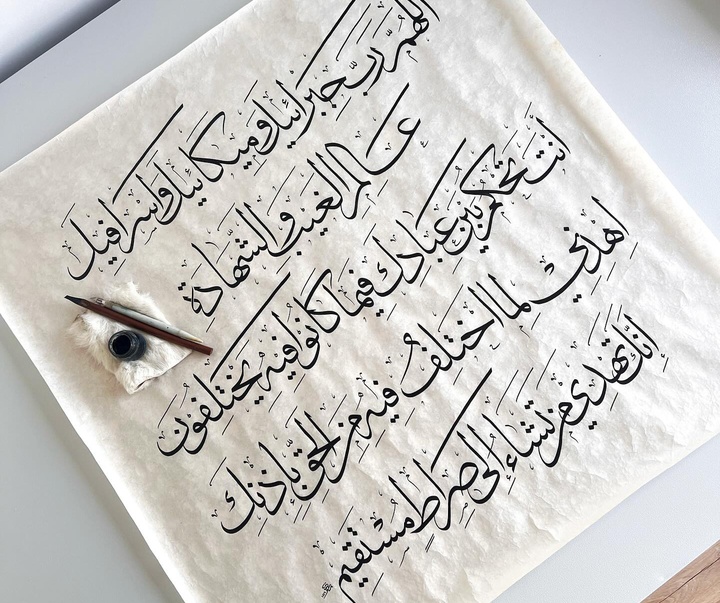 اللهم رب جبرائيل وميكائيل وإسرافيل
عالم الغيب والشهادة
أنت تحكم بين عبادك فيما كانوا فيه يختلفون
اهدني لما اختلف فيه من الحق بإذنك
إنك تهدي من تشاء إلى صراط مستقيم